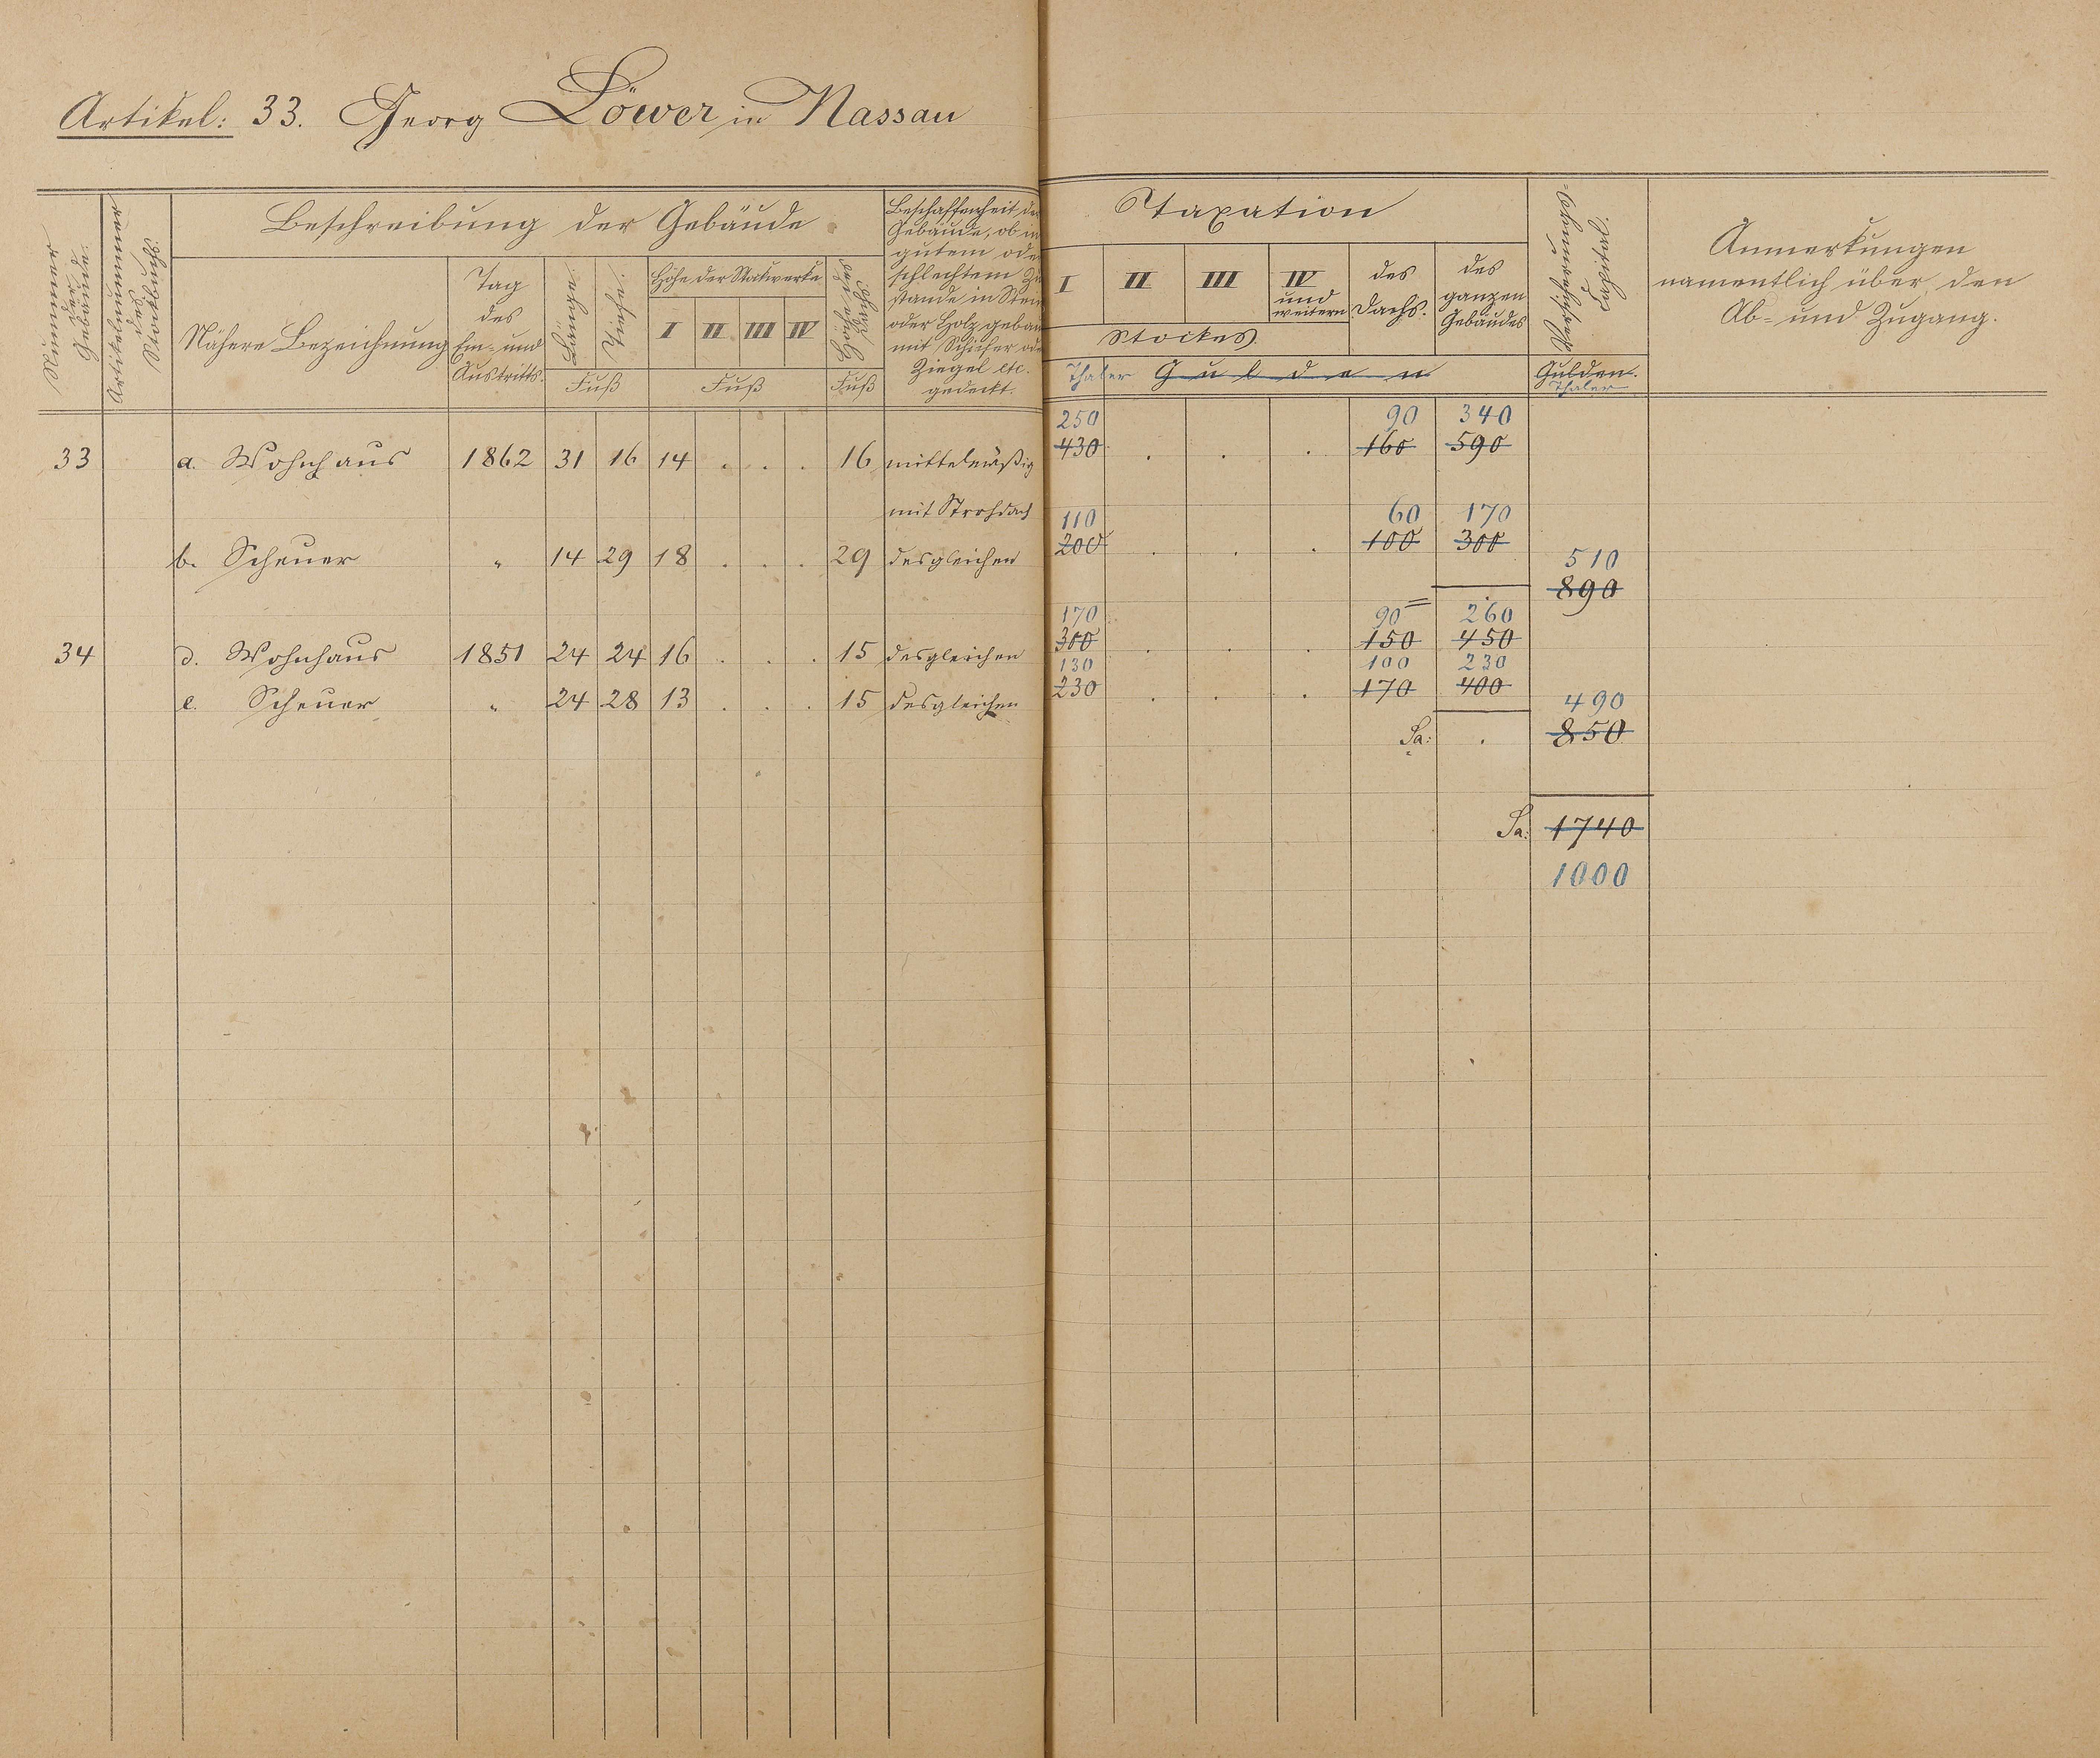 Artikel: 33. Georg Löwer in Nassau
Nummer der Gebäude.
Artikelnummer des Stockbuchs.
Beschreibung der Gebäude.
Nähere Bezeichnung
Tag des Ein- und Austritts.
Länge.
Tiefe.
Fuß
Höhe der Stockwerke
I II III IV
Fuß
Höhe des Dachs
Fuß
Beschaffenheit der
Gebäude, ob in
gutem oder
schlechtem Zu
stande in Stein
oder Holz gebaut
mit Schiefer oder
Ziegel etc.
gedeckt.
Taxation
I II III IV und weitern
Stockes.
des Dachs.
des ganzen Gebäudes
Thaler Gulden
Versicherungs-Capital.
Gulden.
Thaler
Anmerkungen
namentlich über den
Ab- und Zugang.
250 90 340
33 a. Wohnhaus 1862 31 16 14 . . . 16 mittelmäßig 430 . . . 160 590
mit Strohdach
110 60 170
b. Scheuer " 14 29 18 . . . 29 desgleichen 200 . . . 100 300
510
890
170 90 260
34 d. Wohnhaus 1851 24 24 16 . . . 15 desgleichen 300 . . . 150 450
130 100 230
e. Scheuer " 24 28 13 . . . 15 desgleichen 230 . . . 170 400
490
Sa: . 850
Sa: 1740
1000